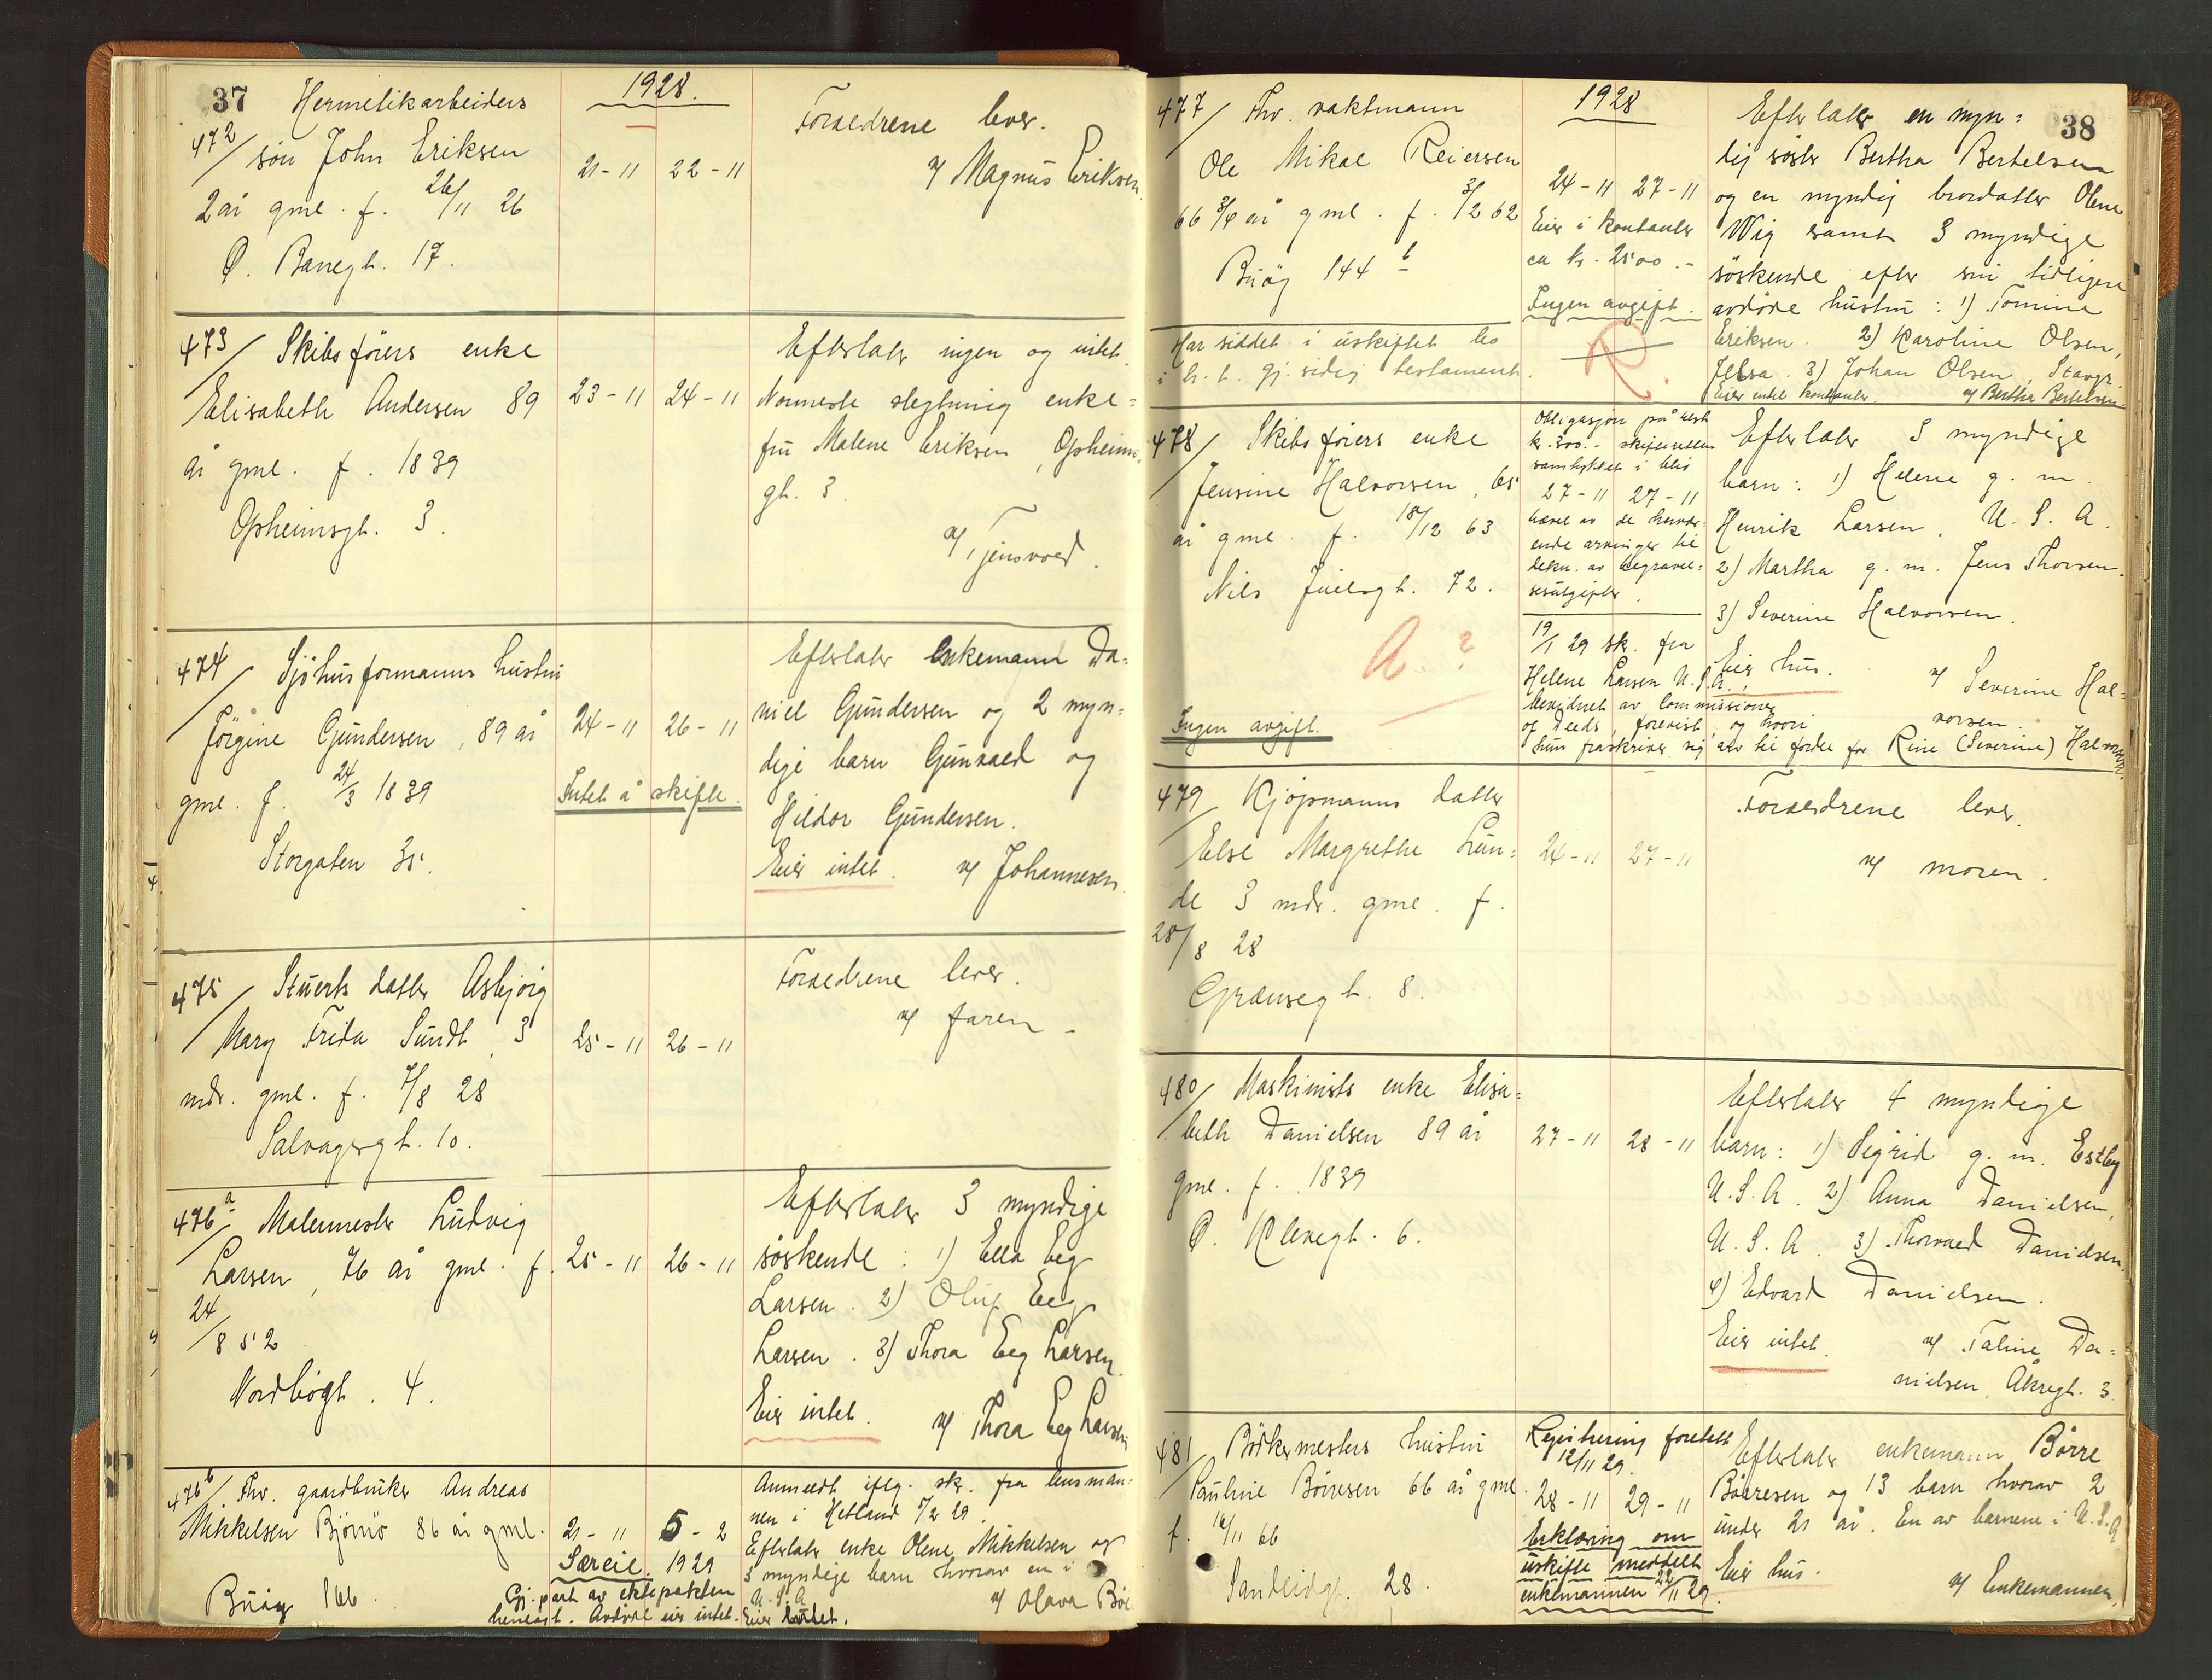 37 Hermetikarbeiders
1928.
472/ søn John Eriksen
2 år gml. f. 26/11 26
Ø. Banegt. 17.
21-11 22-11
Foraeldrene lever.
v/ Magnus Eriksen
473/ Skibsføiers enke
Elisabeth Andersen 89
år gml. f. 1839
Opheimsgt. 3.
23-11 24-11
Efterlater ingen og intet.
Nærmeste slegtning enke=
fru Malene Eriksen, Opheims=
gt. 3.
v/ Tjensvold.
474/ Sjøhusformanns hustru
Jørgine Gundersen, 89 år
gml. f. 24/3 1839
Storgaten 35.
24-11 26-11
Intet å skifte.
Efterlater Enkemann Da=
niel Gundersen og 2 myn=
dige barn Gunvald og
Hildor Gundersen.
Eier intet. v/ Johannesen
475/ Stuerts datter Asbjørg
Mary Frida Sundt, 3
mdr. gml. f. 7/8 28
Salvagergt. 10.
25-11 26-11
Foraeldrene lever.
v/ faren -
476a/ Malermester Ludvig
Larsen, 76 år gml. f.
24/8 52
Nordbøgt. 4.
25-11 26-11
Efterlater 3 myndige
søskende: 1) Ella Eeg
Larsen. 2) Oluf Eeg
Larsen. 3) Thora Eeg Larsen.
Eier intet. v/ Thora Eeg Larsen
476b/ Fhv. gaardbruker Andreas
Mikkelsen Bjørnø 86 år gml.
Buøy 166.
21-11 5-2
Særeie. 1929
Gj.part av ektepakten
henlagt. Avdøde eier intet.
Anmeldt iflg. skr. fra lensman=
nen i Hetland 5/2 29.
Efterlater enke Olene Mikkelsen og
3 myndige barn hvorav en i
U.S.A. v/ Olava
Eier intet.
38
477/ Fhv. vaktmann
Ole Mikal Reiersen
66 3/4 år gml. f. 3/2 62
Buøy 144 b
Har siddet i uskiftet bo
i h. t. gj.sidig testament.
1928
24-11 27-11
Eier i kontanter
ca kr. 2500.-
Ingen avgift.
R.
Efterlater en myn=
dig søster Bertha Bertelsen
og en myndig brordatter Olene
Wig samt 3 myndige
søskende efter sin tidligere
avdøde hustru: 1) Tomine
Eriksen. 2) Karoline Olsen,
Jelsa. 3) Johan Olsen, Stavgr.
Eier endel kontanter. v/ Bertha Bertelsen
478/ Skibsføiers enke
Jensine Halvorsen, 65
år gml. f. 18/12 63
Nils Juelsgt. 72.
A. ?
Ingen avgift.
Obligasjon på rest
kr. 300.- skifteretten
samtykket i blir
27-11 27-11
hævet av de hervær=
ende arvinger til
dekn. av begravel=
sesutgifter.
19/1 29 skr. fra
Helene Larsen U.S.A.,
bevidnet av Commissioner
of Deeds, forevist, og hvori
hun fraskriver sig arv til fordel for Rine (Severine) Halvorsen
Efterlater 3 myndige
barn: 1) Helene g. m.
Henrik Larsen, U. S. A.
2) Martha g. m. Jens Thorsen.
3) Severine Halvorsen.
Eier hus. v/ Severine Hal=
vorsen.
479/ Kjøpmanns datter
Else Margrethe Lun=
de 3 mdr. gml. f.
28/8 28
Grænsegt. 8.
24-11 27-11
Foraeldrene lever.
v/ moren.
480/ Maskinists enke Elisa=
beth Danielsen 89 år
gml. f. 1839
Ø. Klevegt. 6.
27-11 28-11
Efterlater 4 myndige
barn: 1) Sigrid g. m. Estby
U.S.A. 2) Anna Danielsen,
U. S. A. 3) Thorvald Danielsen.
4) Edvard Danielsen.
Eier intet. v/ Taline Da=
nielsen, Åkregt. 3.
481/ Bødkermesters hustru
Pauline Børresen 66 år gml.
f. 16/11 66
Sandeidgt. 28.
Registrering foretatt
12/11 29.
28-11 29-11
Erklæring om
uskifte meddelt
enkemannen 22/11 29.
Efterlater enkemann Børre
Børresen og 13 barn hvorav 2
under 21 år. En av barnene i U.S.A
Eier hus.
v/ Enkemannen.